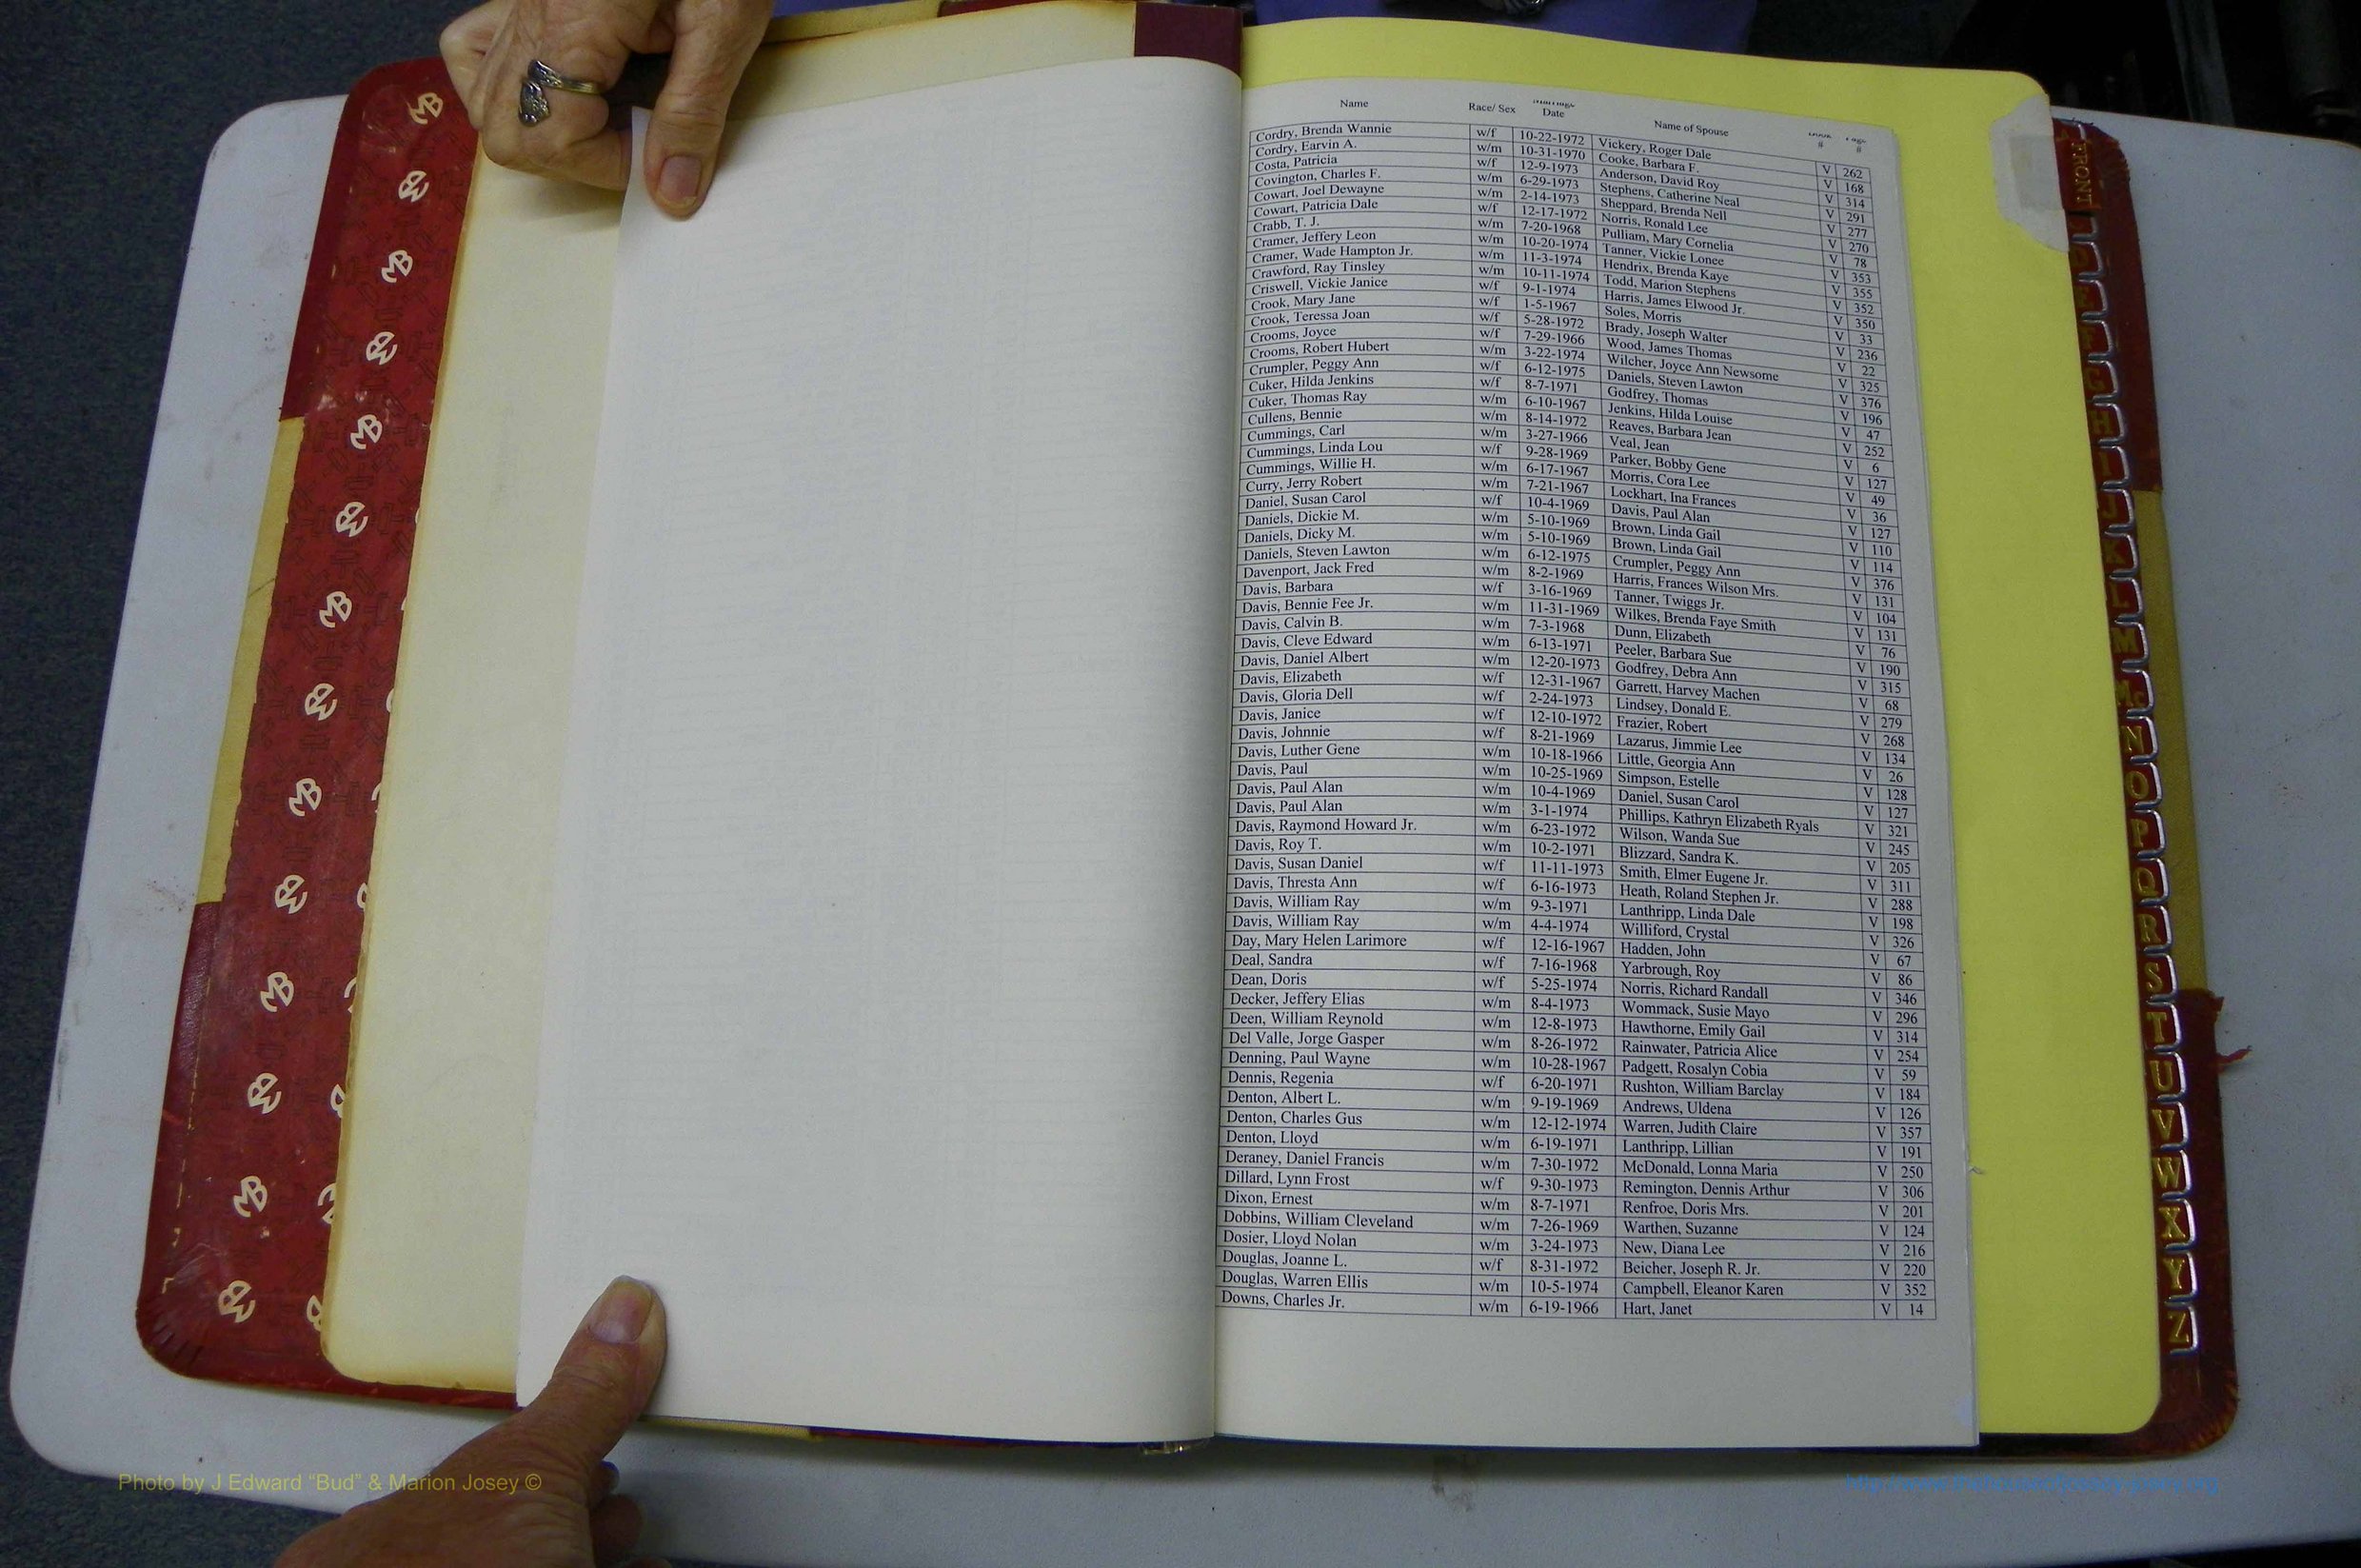 Name Race/ Sex Date Name of Spouse # #
Cordry, Brenda Wannie w/f 10-22-1972 Vickery, Roger Dale V 262
Cordry, Earvin A. w/m 10-31-1970 Cooke, Barbara F. V 168
Costa, Patricia w/f 12-9-1973 Anderson, David Roy V 314
Covington, Charles F. w/m 6-29-1973 Stephens, Catherine Neal V 291
Cowart, Joel Dewayne w/m 2-14-1973 Sheppard, Brenda Nell V 277
Cowart, Patricia Dale w/f 12-17-1972 Norris, Ronald Lee V 270
Crabb, T. J. w/m 7-20-1968 Pulliam, Mary Cornelia V 78
Cramer, Jeffery Leon w/m 10-20-1974 Tanner, Vickie Lonee V 353
Cramer, Wade Hampton Jr. w/m 11-3-1974 Hendrix, Brenda Kaye V 355
Crawford, Ray Tinsley w/m 10-11-1974 Todd, Marion Stephens V 352
Criswell, Vickie Janice w/f 9-1-1974 Harris, James Elwood Jr. V 350
Crook, Mary Jane w/f 1-5-1967 Soles, Morris V 33
Crook, Teressa Joan w/f 5-28-1972 Brady, Joseph Walter V 236
Crooms, Joyce w/f 7-29-1966 Wood, James Thomas V 22
Crooms, Robert Hubert w/m 3-22-1974 Wilcher, Joyce Ann Newsome V 325
Crumpler, Peggy Ann w/f 6-12-1975 Daniels, Steven Lawton V 376
Cuker, Hilda Jenkins w/f 8-7-1971 Godfrey, Thomas V 196
Cuker, Thomas Ray w/m 6-10-1967 Jenkins, Hilda Louise V 47
Cullens, Bennie w/m 8-14-1972 Reaves, Barbara Jean V 252
Cummings, Carl w/m 3-27-1966 Veal, Jean V 6
Cummings, Linda Lou w/f 9-28-1969 Parker, Bobby Gene V 127
Cummings, Willie H. w/m 6-17-1967 Morris, Cora Lee V 49
Curry, Jerry Robert w/m 7-21-1967 Lockhart, Ina Frances V 36
Daniel, Susan Carol w/f 10-4-1969 Davis, Paul Alan V 127
Daniels, Dickie M. w/m 5-10-1969 Brown, Linda Gail V 110
Daniels, Dicky M. w/m 5-10-1969 Brown, Linda Gail V 114
Daniels, Steven Lawton w/m 6-12-1975 Crumpler, Peggy Ann V 376
Davenport, Jack Fred w/m 8-2-1969 Harris, Frances Wilson Mrs. V 131
Davis, Barbara w/f 3-16-1969 Tanner, Twiggs Jr. V 104
Davis, Bennie Fee Jr. w/m 11-31-1969 Wilkes, Brenda Faye Smith V 131
Davis, Calvin B. w/m 7-3-1968 Dunn, Elizabeth V 76
Davis, Cleve Edward w/m 6-13-1971 Peeler, Barbara Sue V 190
Davis, Daniel Albert w/m 12-20-1973 Godfrey, Debra Ann V 315
Davis, Elizabeth w/f 12-31-1967 Garrett, Harvey Machen V 68
Davis, Gloria Dell w/f 2-24-1973 Lindsey, Donald E. V 279
Davis, Janice w/f 12-10-1972 Frazier, Robert V 268
Davis, Johnnie w/f 8-21-1969 Lazarus, Jimmie Lee V 134
Davis, Luther Gene w/m 10-18-1966 Little, Georgia Ann V 26
Davis, Paul w/m 10-25-1969 Simpson, Estelle V 128
Davis, Paul Alan w/m 10-4-1969 Daniel, Susan Carol V 127
Davis, Paul Alan w/m 3-1-1974 Phillips, Kathryn Elizabeth Ryals V 321
Davis, Raymond Howard Jr. w/m 6-23-1972 Wilson, Wanda Sue V 245
Davis, Roy T. w/m 10-2-1971 Blizzard, Sandra K. V 205
Davis, Susan Daniel w/f 11-11-1973 Smith, Elmer Eugene Jr. V 311
Davis, Thresta Ann w/f 6-16-1973 Heath, Roland Stephen Jr. V 288
Davis, William Ray w/m 9-3-1971 Lanthripp, Linda Dale V 198
Davis, William Ray w/m 4-4-1974 Williford, Crystal V 326
Day, Mary Helen Larimore w/f 12-16-1967 Hadden, John V 67
Deal, Sandra w/f 7-16-1968 Yarbrough, Roy V 86
Dean, Doris w/f 5-25-1974 Norris, Richard Randall V 346
Decker, Jeffery Elias w/m 8-4-1973 Wommack, Susie Mayo V 296
Deen, William Reynold w/m 12-8-1973 Hawthorne, Emily Gail V 314
Del Valle, Jorge Gasper w/m 8-26-1972 Rainwater, Patricia Alice V 254
Denning, Paul Wayne w/m 10-28-1967 Padgett, Rosalyn Cobia V 59
Dennis, Regenia w/f 6-20-1971 Rushton, William Barclay V 184
Denton, Albert L. w/m 9-19-1969 Andrews, Uldena V 126
Denton, Charles Gus w/m 12-12-1974 Warren, Judith Claire V 357
Denton, Lloyd w/m 6-19-1971 Lanthripp, Lillian V 191
Deraney, Daniel Francis w/m 7-30-1972 McDonald, Lonna Maria V 250
Dillard, Lynn Frost w/f 9-30-1973 Remington, Dennis Arthur V 306
Dixon, Ernest w/m 8-7-1971 Renfroe, Doris Mrs. V 201
Dobbins, William Cleveland w/m 7-26-1969 Warthen, Suzanne V 124
Dosier, Lloyd Nolan w/m 3-24-1973 New, Diana Lee V 216
Douglas, Joanne L. w/f 8-31-1972 Beicher, Joseph R. Jr. V 220
Douglas, Warren Ellis w/m 10-5-1974 Campbell, Eleanor Karen V 352
Downs, Charles Jr. w/m 6-19-1966 Hart, Janet V 14
FRONT
H
M
N
O
P
Q
R
S
T
U
V
W
X
Y
Z
Photo by J Edward “Bud” & Marion Josey ©